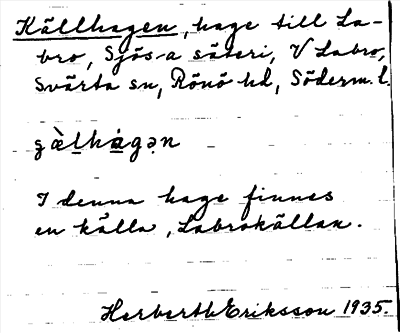 Källhagen, hage till La-
bro, Sjös-a säteri, V Labro,
Svärta sn, Rönö hd, Söderm. l.
I denna hage finnes
en källa, Labrokällan.
Herbert Eriksson 1935.